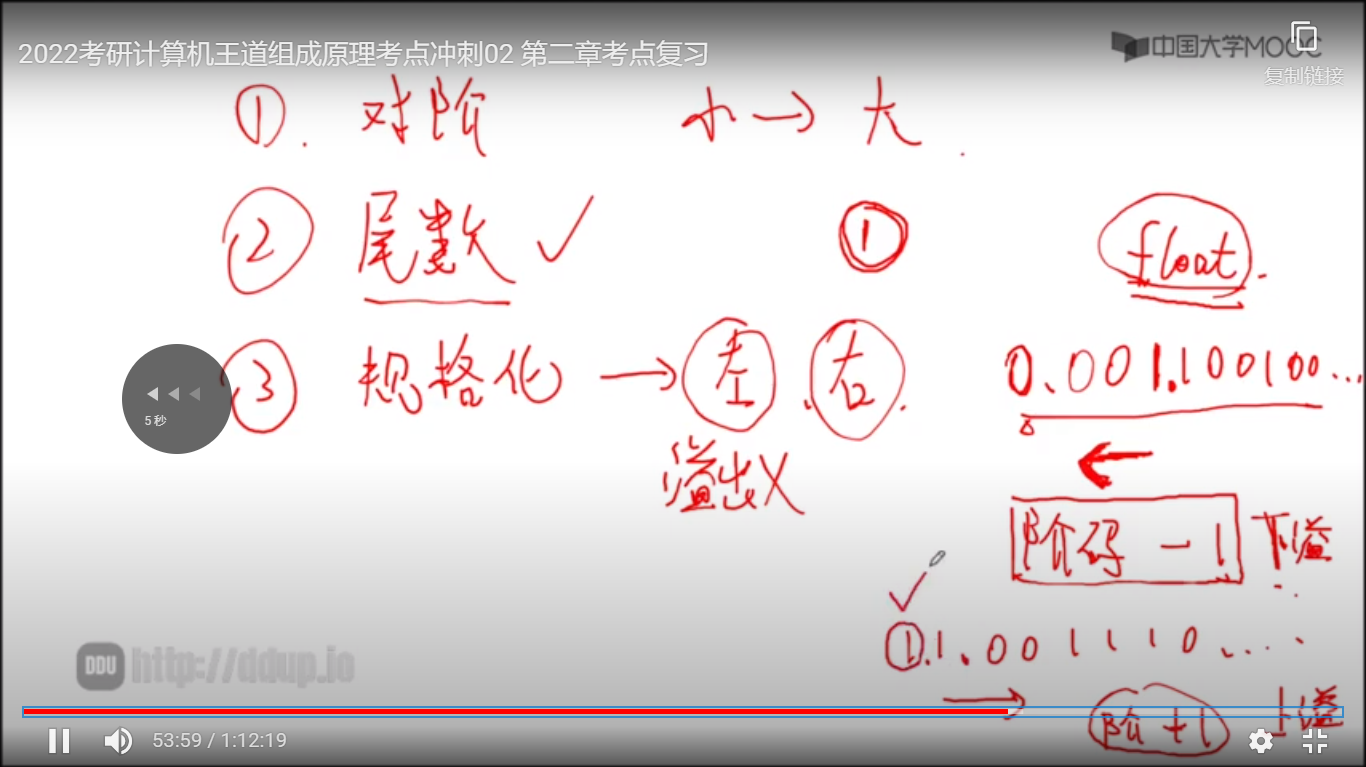 2022考研计算机王道组成原理考点冲刺02 第二章考点复习
中国大学MOOC
复制链接
①. 对阶 小→大.
② 尾数 ✓ ① float.
③ 规格化 → 左.右. 0.001.100100...
5 秒
溢出X ←
阶码 -1 下溢
✓
①.1.0011110....
→ 阶+1 上溢
DDU http://ddup.io
53:59 / 1:12:19